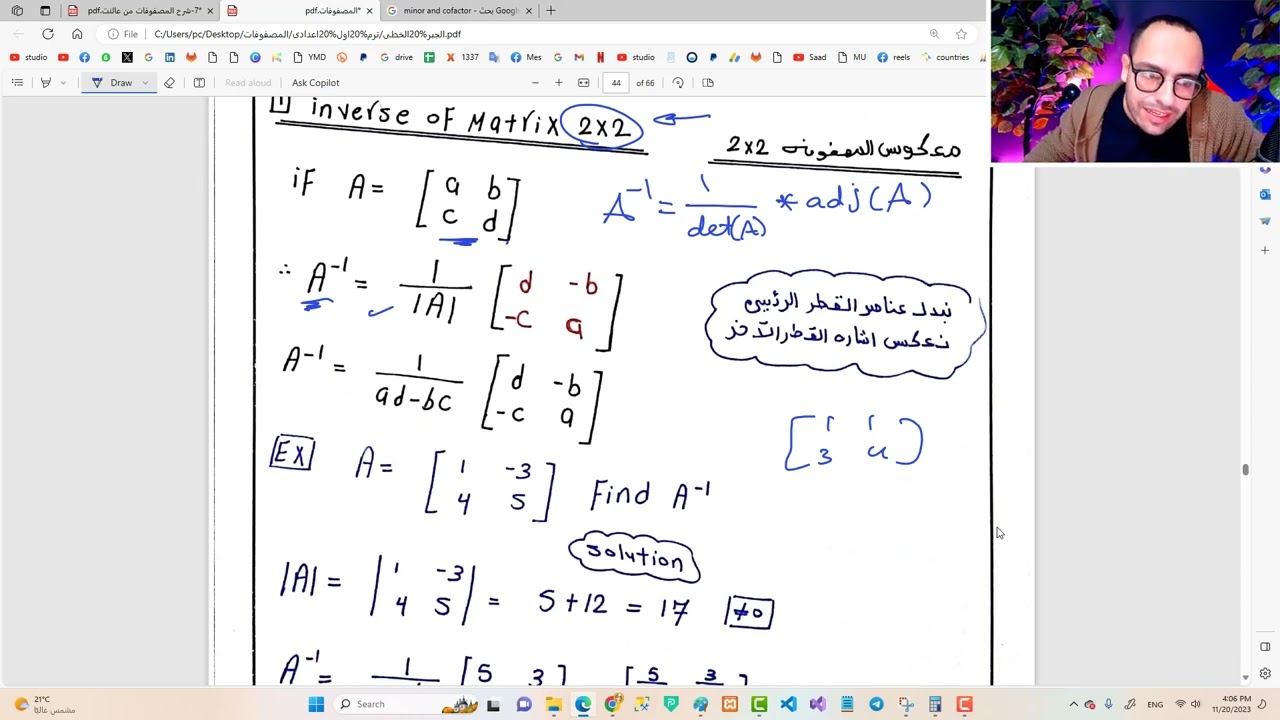 7-شرح المصفوفات من عالت.pdf
المصفوفات.pdf*
minor and cofactor - بحث Google
File C:/Users/pc/Desktop/الجبر%20الخطى/ترم%20اول%20اعدادى/المصفوفات.pdf
studio YMD drive 1337 Mes studio Saad MU reels countries
Draw Read aloud Ask Copilot 44 of 66
1 inverse of Matrix 2×2
معكوس المصفوفه 2×2
if A = [a b
c d]
A⁻¹ = 1/det(A) * adj(A)
∴ A⁻¹ = 1/|A| [d -b
-c a]
نبدل عناصر القطر الرئيسى
نعكس اشاره القطر الآخر
A⁻¹ = 1/ad-bc [d -b
-c a]
[1 1
3 4]
EX A = [1 -3
4 5] Find A⁻¹
solution
|A| = |1 -3
4 5| = 5+12 = 17 ≠0
A⁻¹ = 1 [5 3] [5 3]
21°C
مشمس غالبًا
Search
6:06 PM
11/20/2023